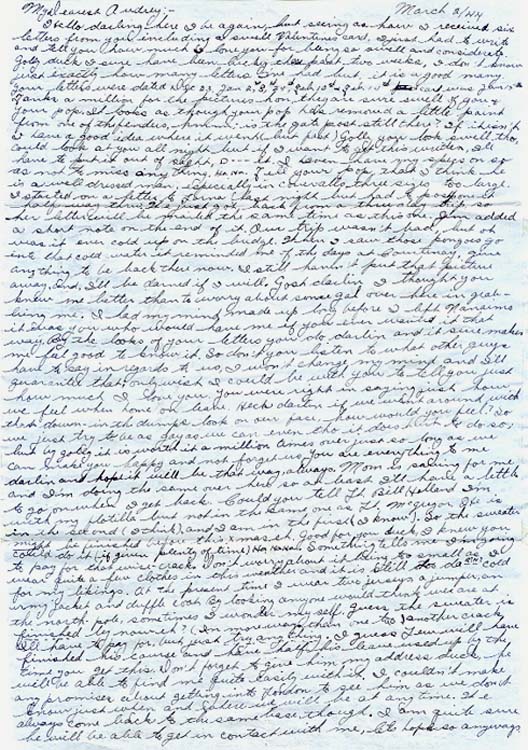 My Dearest Audrey:-
March 2/44
Hello darling here I be again, but seeing as how I received six
letters from you including a swell Valentines card, I just had to write
and tell you how much I love you for being so swell and considerate
Golly duck I sure have been lucky the past two weeks, I don't know
just exactly how many letters I've had but, it is a good many
Your letters were dated Dec 23, Jan 2, 3, Feb 10th card was Jan 15th
Thanks a million for the pictures hon, they are sure swell of you &
your pop. It looks as though your pop has removed a little paint
from one of the fenders, hmm! is the gate post still there? If it isn't
I have a good idea where it went. But just) Golly you look swell tho,
could look at you all night but if I want to get this written, I'll
have to put it out of sight, D--- it. I even have my specs on so
as not to miss anything, Ha, Ha. Tell your pop, that I think he
is a well dressed man, specially in coveralls three sizes too large.
I started on a letter to last night but had to postpone it
half way thru. I've just got back from a short trip so
her letter will be mailed the same time as this one. I just added
a short note on the end of it. Our trip wasn't bad, but oh
was it ever cold up on the bridge. When I saw those pongoes go
into that cold water it reminded me of the days at Courtenay. Give
anything to be back there now. I still haven't put that picture
away. And, I'll be darned if I will. Gosh darlin I thought you
knew me better than to worry about some gal over here in grab-
bing me. I had my mind made up long before I left Nanaimo
it was you who would have me if you ever wanted it that
way. By the looks of your letters you do darlin and it sure makes
me feel good to know it. So don't you listen to what other guys
have to say in regards to us, I won't change my mind and I'll
guarantee that. Only wish I could be with you to tell you just
how much I love you. You were right in saying just how
we feel when home on leave. Heck darlin if we went around with
that down-in-th dumps look on our faces how would you feel? So
we just try to be as gay as we can, altho it does hurt to do so,
but by golly it is worth it a million times over just so long as we
can make you happy and not forget us. You are everything to me
darlin and hope it will be that way, always. Mom is saving for me
and I'm doing the same over here so at least I'll have a little
to go on when I get back. Could you tell Lt. Bill Holland I'm
with my flotilla but not in the same one as Lt. McGregor. He is
in the second (I think) and I am in the first (I know). So, the sweater
might be finished before this xmas, eh. Good for you duck, I knew you
could do it (if given plenty of time) Ha Ha Ha. Something tells me I'm going
to pay for those wise-cracks. Don't worry about it being too small as I
wear quite a few clothes in this weather and it is still too da** cold
for my likings. At the present time I wear two jerseys a jumper, an
army jacket and duffle coat. By looking anyone would think we are at
the north pole, sometimes I wonder my self. Guess the sweater is
finished by now eh? (In more ways than one too) another crack
I'll have to pay for, but just try anything. I guess Lew will have
finished his course and have half his leave used up by the
time you get this. Don't forget to give him my address duck, he
will be able to find me quite easily with it. I couldn't make
any promises about getting into London to see him as we don't
know just when and where we will be at any time. He
always come back to the same use though. I am quite sure
he will be able to get in contact with me, lets hope so anyways